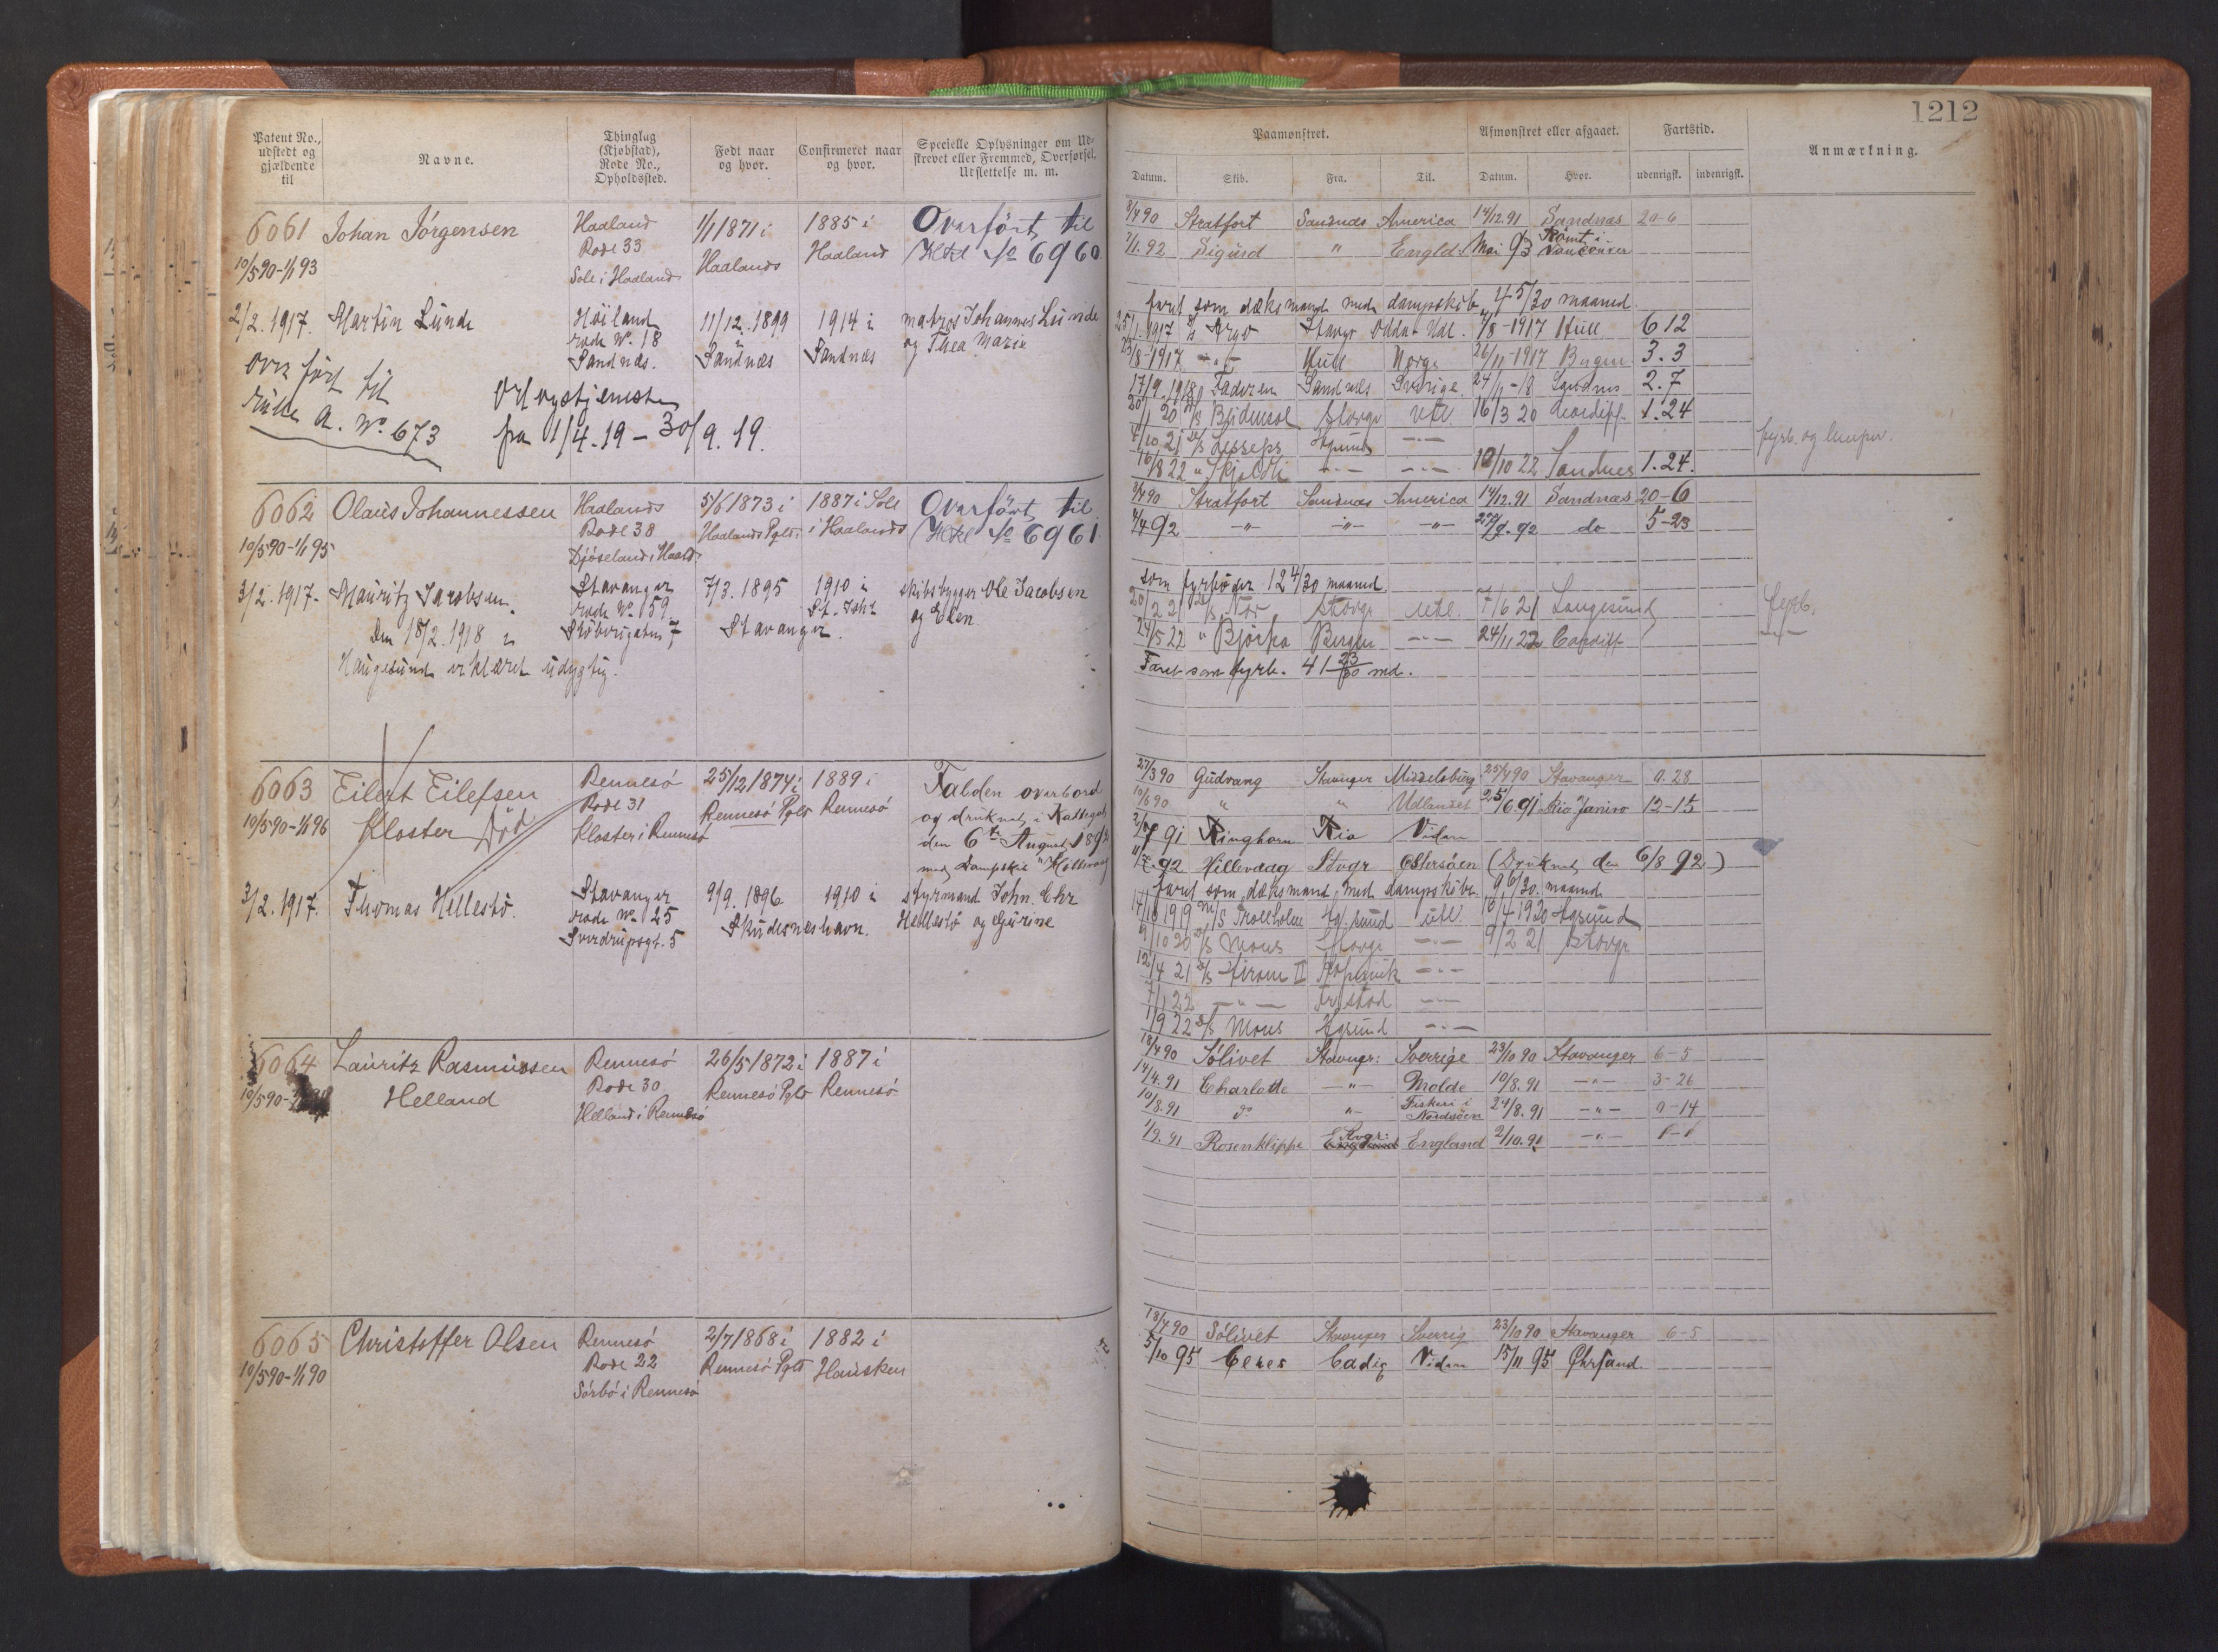 1212
Patent No., udstedt og gjældende til
Navne.
Thinglag (Kjøbstad), Rode No., Opholdssted.
Født naar og hvor.
Confirmeret naar og hvor.
Specielle Oplysninger om Udskrevet eller Fremmed, Overførsel, Udslettelse m. m.
Paamønstret.
Afmønstret eller afgaaet.
Fartstid.
Anmærkning.
Datum. Skib. Fra. Til. Datum. Hvor. udenrigsk. indenrigsk.
6061 Johan Jörgensen Haaland 1/1 1871 i 1885 i Overført til
10/5 90-1/1 93 Rode 33 Haalands Haaland No 6960
Sole i Haaland
8/4 90 Stratfort Sandnæs America 14/12.91 Sandnæs 20-6
2/1.92 Sigurd " Engld. Mai 93 Römt i Vancouver
2/2.1917. Martin Lunde Höiland 11/12.1899 1914 i matros Johannes Lunde
rode No. 18 Sandnæs Sandnæs og Thea Marie
Sandnæs.
Overført til
rulle A. No. 673
Orlogstjeneste
fra 1/4.19 - 30/9.19.
faret som dæksmand med dampskib 4 5/30 maaned
25/1.1917 D/S Argo Stavgr Odda Udl. 7/8-1917 Hull 6 12
23/8-1917 -"- Hull Norge 26/11-1917 Bergen 3.3
17/9.1918 Faderen Sandnæs Sverige 24/11-18 Sandnes 2.7
20/1 20 Stavgr Utl 16/3 20 Cardiff 1.24
4/10 21 D/S Lesseps Hgsund -"-
16/8 22 " -"- -"- 10/10 22 Sandnes 1.24.
fyrb. og lemper.
6062 Olaus Johannessen Haalands 5/6 1873 i 1887 i Sole Overført til
10/5 90-1/1 95 Rode 38 Haalands Pgld. i Haalands No 6961
Djöseland i Haald.
8/4 90 Stratfort Sandnæs America 14/12.91 Sandnæs 20-6
4/4 92 -"- -"- -"- 27/9.92 do 5-23
3/2.1917. Mauritz Jacobsen. Stavanger 7/3.1895 1910 i skibsbygger Ole Jacobsen
rode No 159 Stavanger. St. Joh. og Elen
Den 18/2.1918 i
Haugesund erklæret udygtig.
som fyrbøder 12 4/30 maaned
20/2 21 D/S Nor Stavgr Utl. 7/6 21 Langesund fyrb.
24/5 22 " Bjørka Bergen -"- 24/11 22 Cardiff -"-
Faret som fyrb. 41 23/30 md.
6063 Eilert Eilefsen Rennesö 25/12 1874 i 1889 i Falden overbord
10/5 90-1/1 96 Kloster Död Rode 31 Rennesö Pgld Rennesö og druknet i Kattegat
Kloster i Rennesö den 6te August 1892
med Dampskib "Hillevaag"
27/3 90 Gudvang Stavanger Middelsburg 25/4 90 Stavanger 0.28
10/6 90 " " Udlandet 25/6.91 Rio Janiro 12-15
7 91 Ringhorn Rio Vidare
92 Hillevaag Stvgr Östersöen (Druknet den 6/8 92)
3/2.1917. Thomas Hellestö. Stavanger 9/9.1896 1910 i styrmand John. Chr
rode No. 125 Skudesneshavn. Hellestö og Gurine
Sverdrupsgt. 5
faret som dæksmand med dampskib 9 6/30 maaned
17/10 1919 M/S Trolleholm Hg.sund utl. 10/4 1920 Hgsund
9/10 20 D/S Mons Stavgr -"- 9/2 21 Stavgr
12/4 21 D/S Hiram II Kopervik -"-
7/1 22 -"- Fr.stad -"-
1/9 22 D/S Mons Hgsund -"-
6064 Lauritz Rasmussen Rennesö 26/5 1872 i 1887 i
10/5 90- Helland Rode 30 Rennesö Pgld Rennesö
Helland i Rennesö
18/4 90 Sölivet Stavngr: Sverrige 23/10 90 Stavanger 6-5
14/4.91 Charlotte -"- Molde 10/8.91 -"- 3-26
10/8.91 do "- Fiskeri i Nordsöen 24/8.91 -"- 0-14
1/9.91 Rosenklippe Stvgr: England 2/10.91 -"-
6065 Christoffer Olsen Rennesö 2/7 1868 i 1882 i
10/5 90-1/1 90 Rode 22 Rennesö Pgld Hausken
Sörbö i Rennesö
18/4 90 Sölivet Stavanger Sverrig 23/10 90 Stavanger 6-5
5/10 95 Ceres Cadiz Vidare 15/11 95 Chrsand.